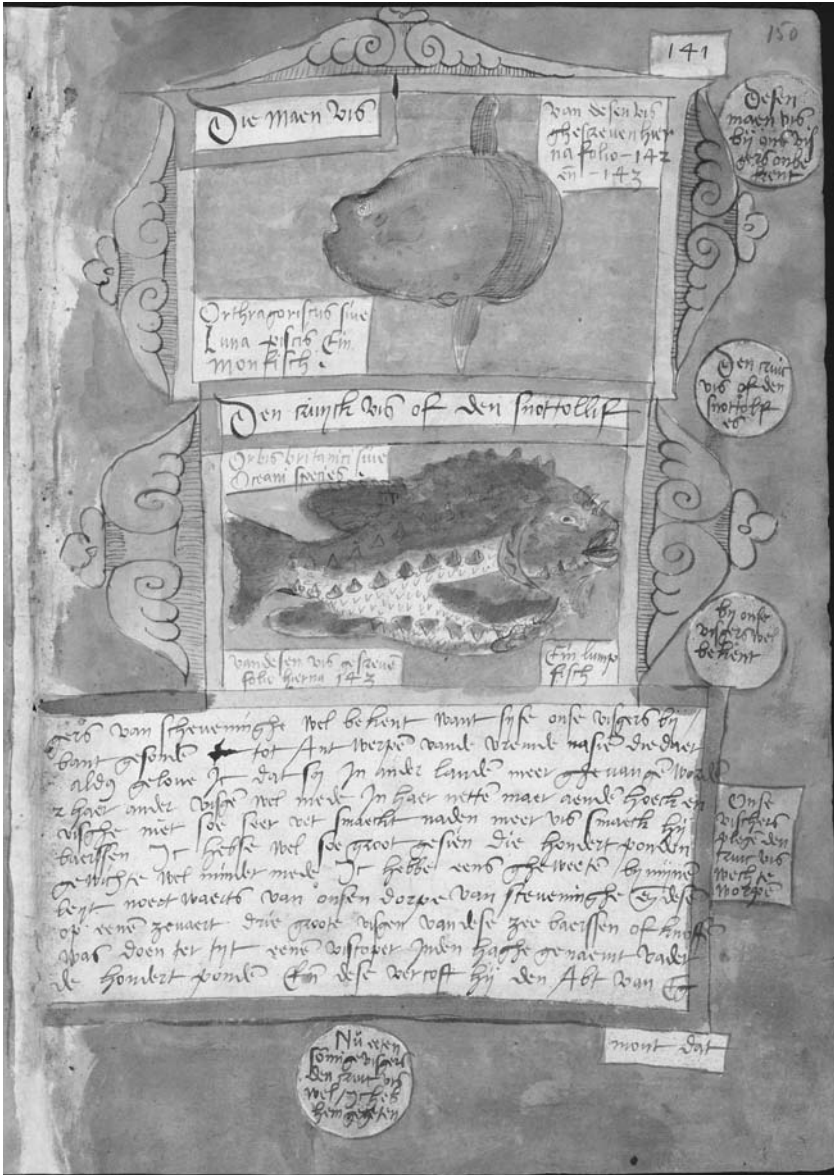 150
141
Die maen vis
van desen vis
ghescreven hier
na folio - 142
en̄ - 143
Desen
maen vis
bij ons vis
gers onbe
kent
Orthragoriscus sive
Luna piscis Ein
monfisch .
Den cruyck vis of den snottollif
Den cruic
vis of den
snottolff
es
Orbis britanici sive
Oceani species .
vandesen vis gescrevē
folie hierna 143
Ein lump
fisch
bij onse
visgers wel
bekent
gers van scheveninghe wel bekent want sijse onse visgers bij
bant gesonden tot Antwerpen vande vremde nasien die daer
aldus gelove Ic dat sij In ander landen meer ghevangē worden
haer ander visgen wel mede In haer netten maer aenden hoeck en
vische niet soe seer vet smaeckt naden meer vis smaeck hij
baerssen Ic hebbe wel soe groot gesien die hondert ponden
gewichte wel minder mede Ic hebbe eens gheweeten bij mijnen
noort waerts van onsen dorpe van sceveninghe
op eenen zevaert drie groote visgen van dese zee baerssen of
was doen ter tijt eenen viscoper Inden haghe genaemt vader
de hondert ponden Ein dese vercoft hij den Abt van Eg
Onse
visschers
plegē den
cruic vis
wech te
worpen
mont dat
Nu eeten
somige visgers
den cruic vis
wel
hem gegeten